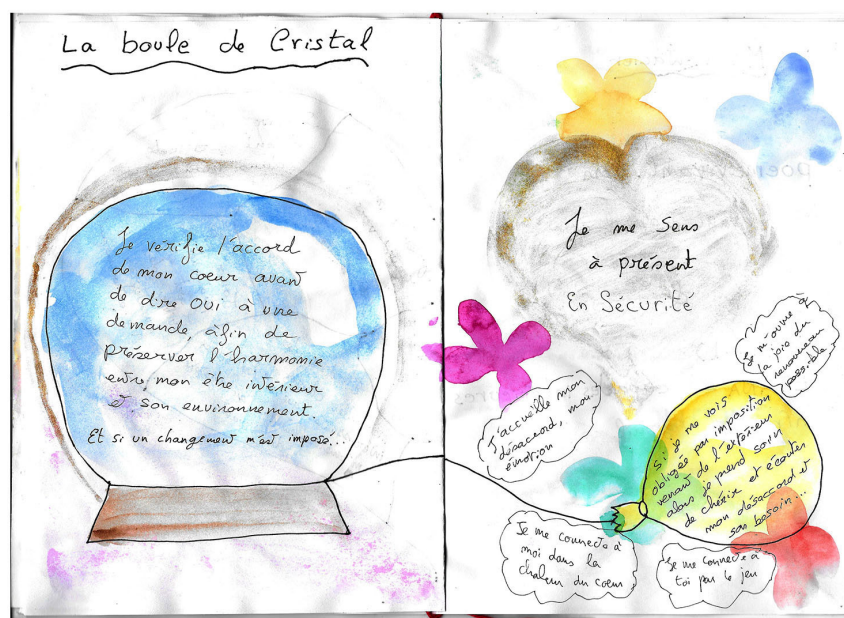 La boule de Cristal
Je vérifie l'accord
de mon coeur avant
de dire OUI à une
demande, afin de
préserver l'harmonie
entre mon être intérieur
et son environnement.
Et si un changement m'est imposé...
Je me sens
à présent
En Sécurité
Je m'ouvre à
la joie du
renouveau
possible
J'accueille mon
désaccord, mon
émotion
Si je me vois
obligée par imposition
venant de l'extérieur
alors je prend soin
de chérir et écouter
mon désaccord et
son besoin...
Je me connecte à
moi dans la
chaleur du coeur
Je me connecte à
toi par le jeu